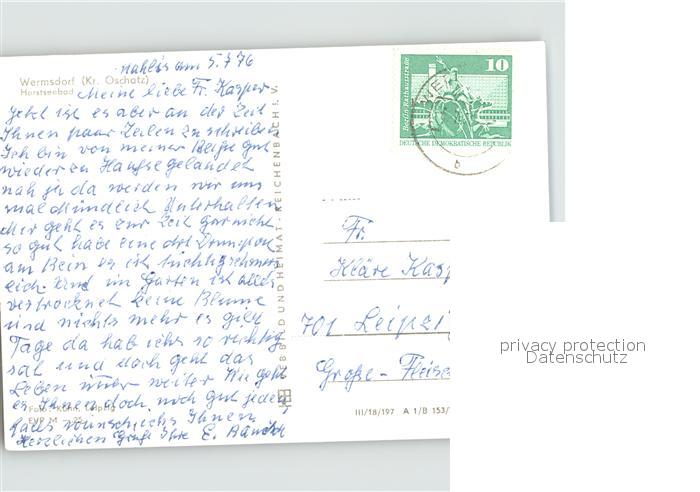 nahlis am 5.7.76
Wermsdorf (Kr. Oschatz)
Horstseebad
Meine liebe Fr. Kasper
jetzt ist es aber an der Zeit
Ihnen paar Zeilen zu schreiben
Ich bin von meiner Reise gut
wieder zu Hause gelandet
nah ja da werden wir uns
mal Mündlich Unterhalten
Mir geht es zur Zeit gar nicht
so gut habe eine Art
am Bein es ist tüchtig schmerz
lich. Und im Garten ist alles
vertrocknet keine Blume
und nichts mehr es gibt
Tage da hab ichs so richtig
sat und doch geht das
Leben immer weiter Wie geht
es Ihnen doch noch gut jeden
falls wünsch ichs Ihnen.
Herzlichen Gruß Ihre E.
Foto: Kühn, Leipzig
EVP M -,25
BILD UND HEIMAT REICHENBACH I. V.
10
Berlin, Rathausstraße
DEUTSCHE DEMOKRATISCHE REPUBLIK
b
Fr.
Kläre Kasp
701 Leipzig
Große - Fleische
III/18/197 A 1/B 153/
privacy protection
Datenschutz